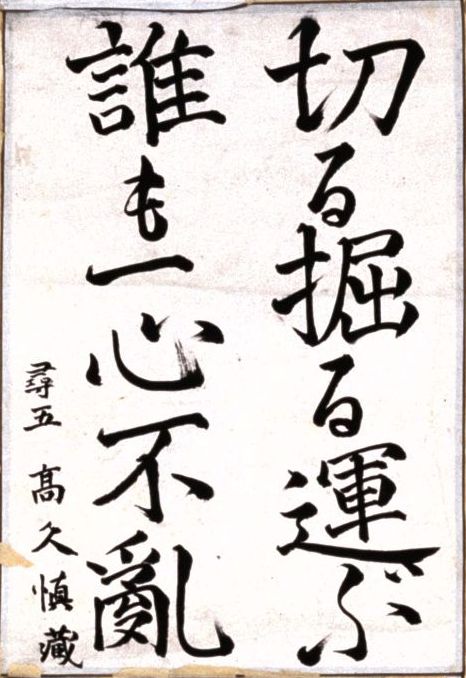 切る掘る運ぶ
誰も一心不亂
尋五 高久慎藏